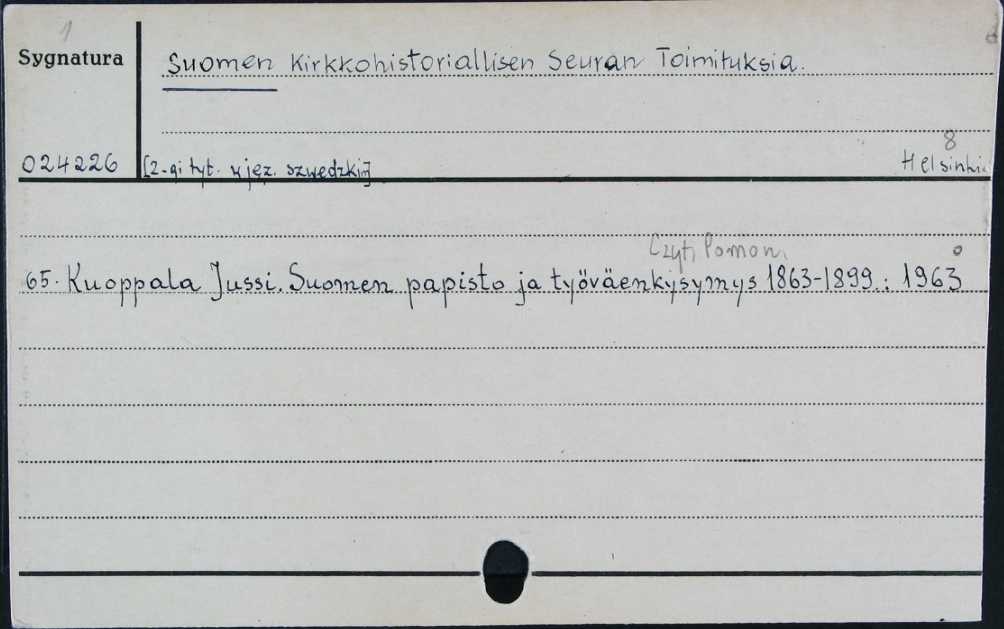 1
Sygnatura
Suomen Kirkkohistoriallisen Seuran Toimituksia.
8
024226 [2-gi tyt. w jęz. szwedzkim] Helsinki
Czyt. Pomoc. o
65. Kuoppala Jussi. Suomen papisto ja työväenkysymys 1863-1899.: 1963